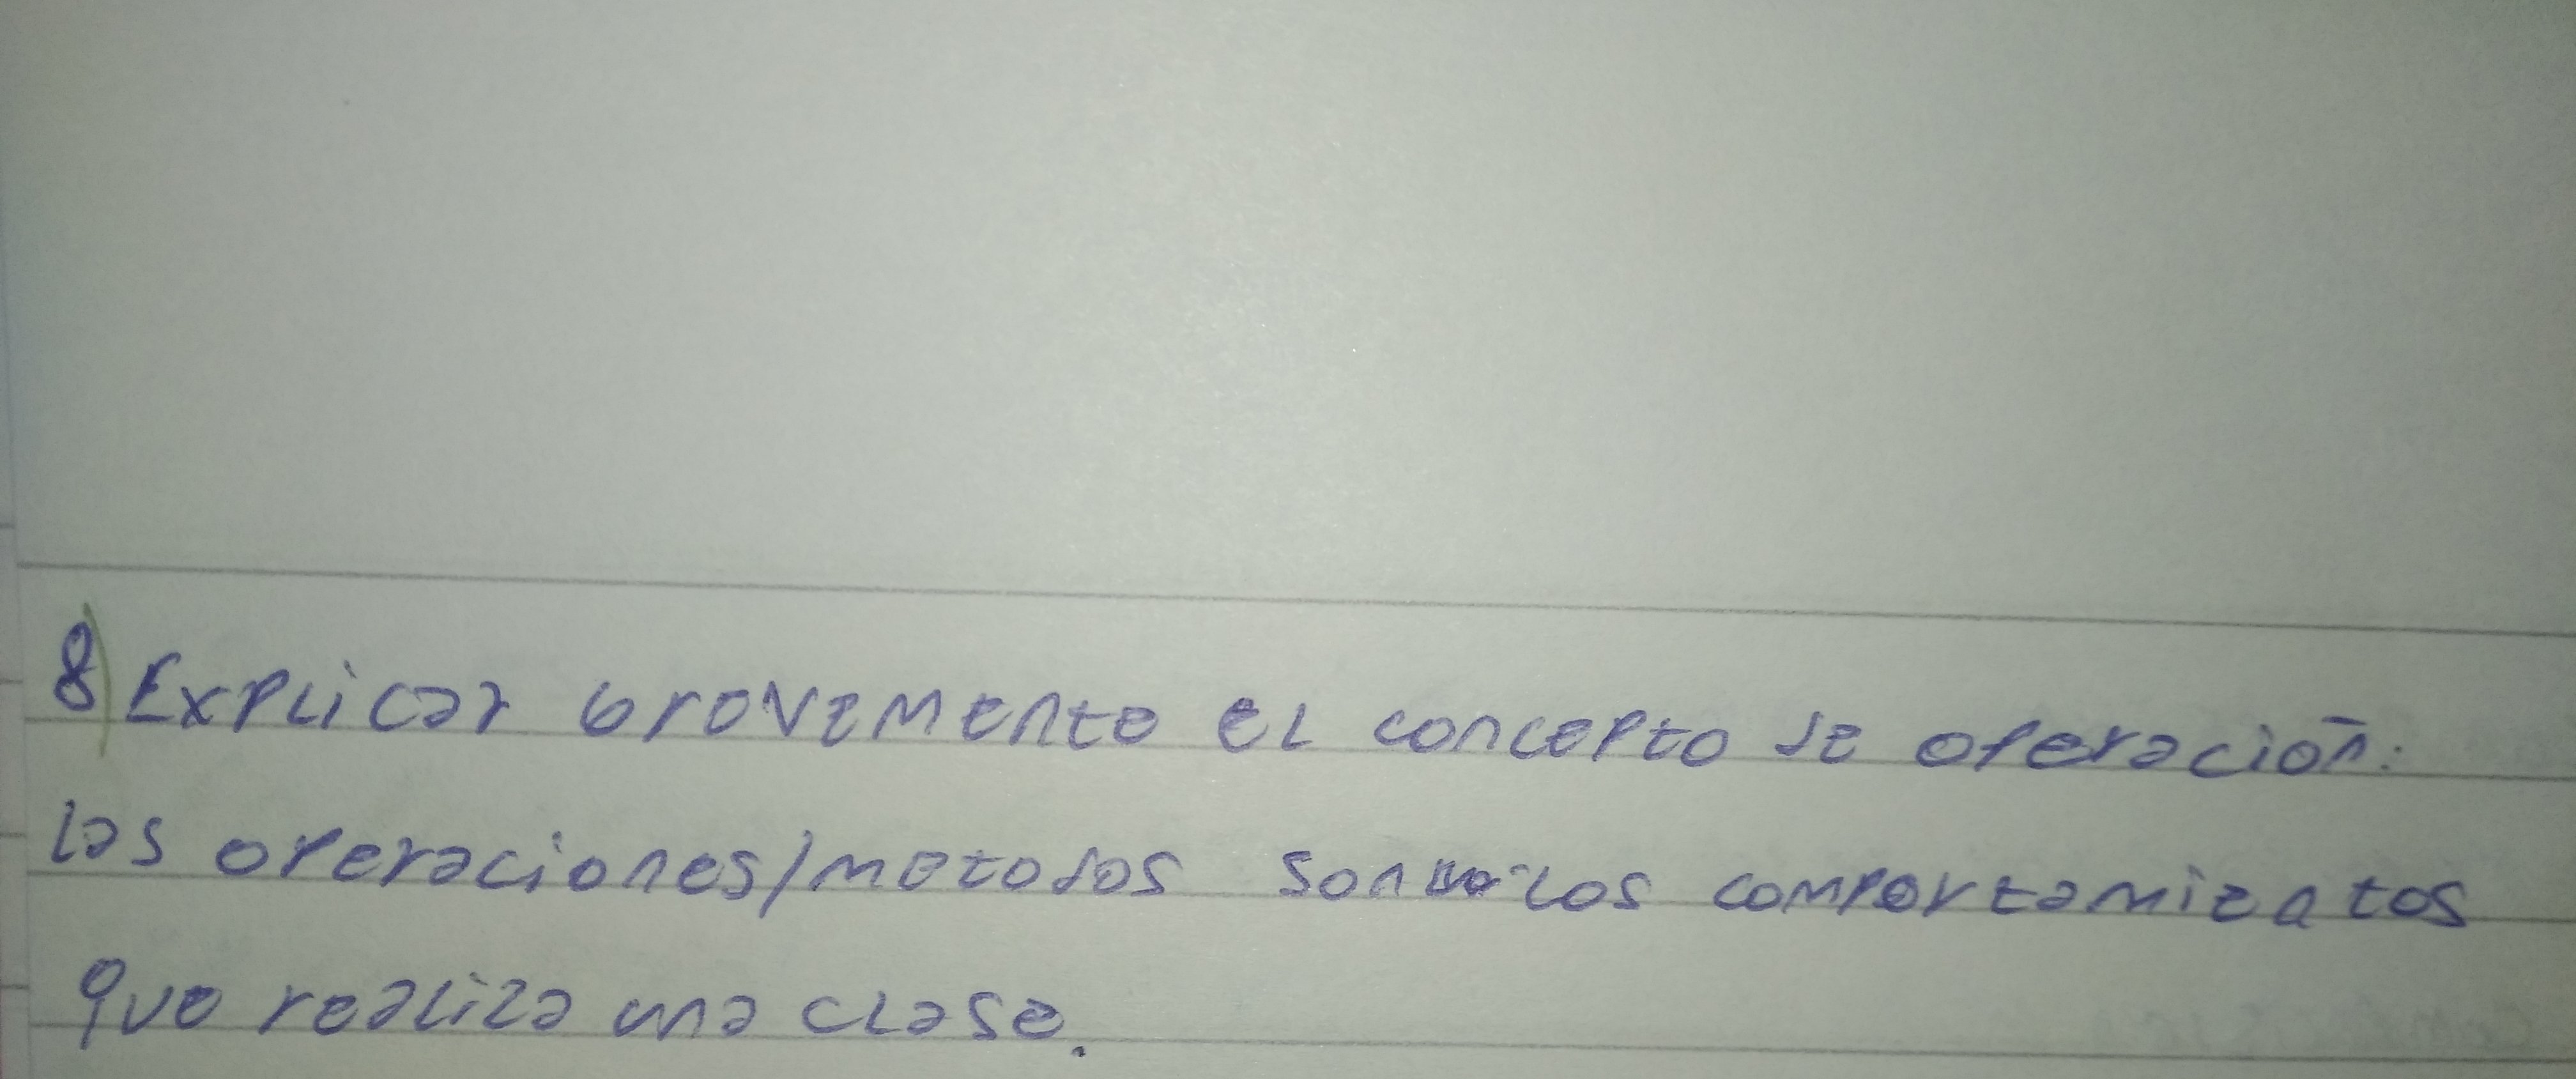 8) Explicar brevemente el concepto de operación:
las operaciones/metodos son los comportamientos
que realiza una clase.